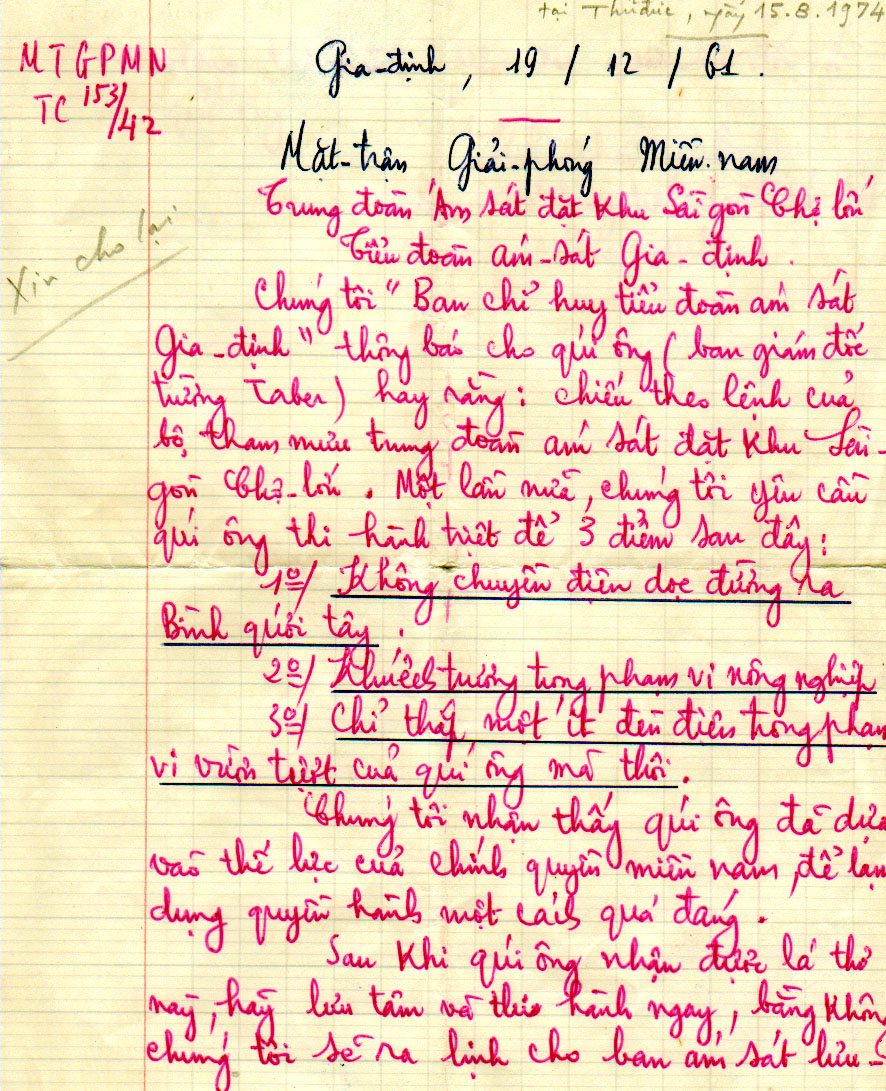 tại Thủđức, ngày 15.8.1974
MTGPMN
TC 153/42
Gia-định, 19 / 12 / 61.
Mặt-trận Giải-phóng Miền-nam
Trung đoàn Ám sát đặt Khu Sài gòn Chợ lớn
Tiểu đoàn ám-sát Gia-định.
Xin cho lại
Chúng tôi "Ban chỉ huy tiểu đoàn ám sát
Gia-định" thông báo cho quí ông (ban giám đốc
trường Taber) hay rằng: chiếu theo lệnh của
bộ tham mưu trung đoàn ám sát đặt Khu Sài-
gòn Chợ-lớn. Một lần nữa, chúng tôi yêu cầu
quí ông thi hành triệt để 3 điểm sau đây:
1º/ Không chuyền điện dọc đường ra
Bình quới tây.
2º/ trương trong phạm vi nông nghiệp
3º/ Chỉ thắp một ít đèn điện trong phạm
vi vườn của quí ông mà thôi.
Chúng tôi nhận thấy quí ông đã dựa
vào thế lực của chính quyền miền nam, để lạm
dụng quyền hành một cách quá đáng.
Sau Khi quí ông nhận được lá thơ
này, hãy lưu tâm và thi hành ngay, bằng Không
chúng tôi sẽ ra lịnh cho ban ám sát lưu-